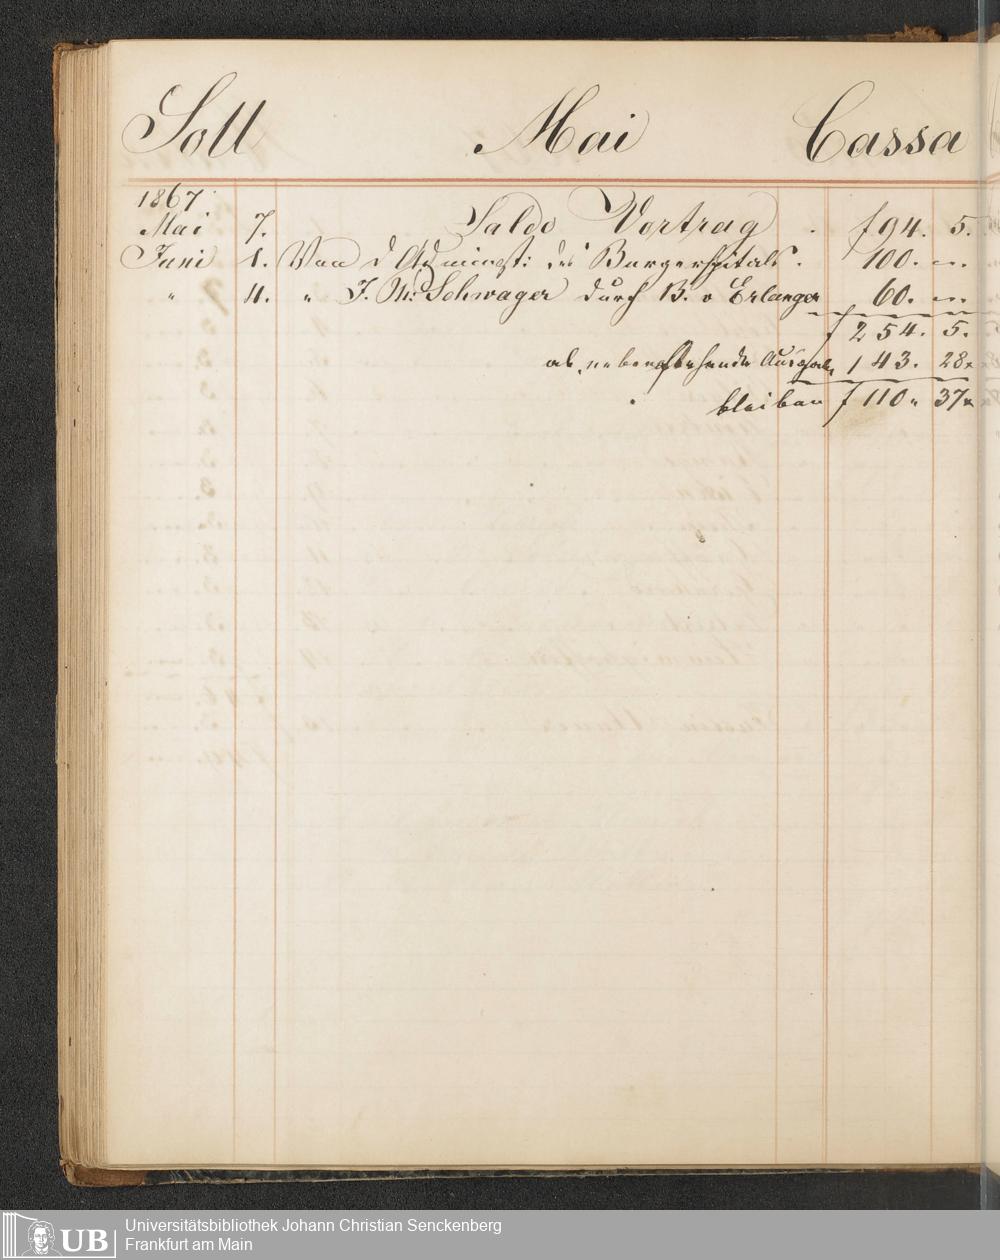 Soll Mai Cassa
1867
Mai 7. Saldo Vortrag . f 94. 5.
Juni 1. Von d Administ: des Burgerspitals. 100. "
" 4. " J. M. Schwager durch B. v Erlanger 60. "
f 254. 5.
ab nebenstehende Ausgabe 143. 28x
bleiben f 110 " 37x
UB
Universitätsbibliothek Johann Christian Senckenberg
Frankfurt am Main